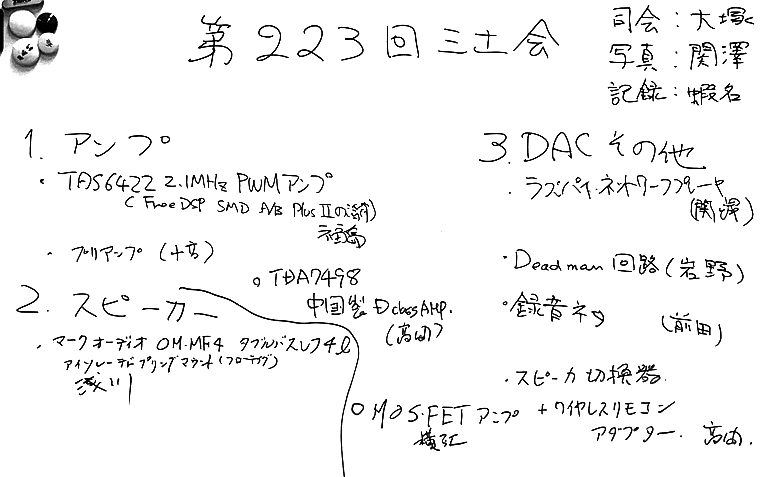 第223回三土会
司会：大塚
写真：関澤
記録：蝦名
1. アンプ
・TAS6422 2.1MHz PWMアンプ
(FreeDSP SMD A/B Plus IIの
福島
・プリアンプ (十高)
○ TDA7498
中国製 D class AMP.
(高田)
2. スピーカー
・マークオーディオ OM-MF4 ダブルバスレフ4ℓ
アイソレーテッドスプリングマウント(フローティング)
浅川
3. DAC その他
・ラズパイ・ネットワークプレーヤ
(関澤)
・Deadman 回路 (岩野)
・録音ネタ
(前田)
・スピーカ切換器
○ MOS-FETアンプ
横江
+ワイヤレスリモコン
アダプター.
高田.